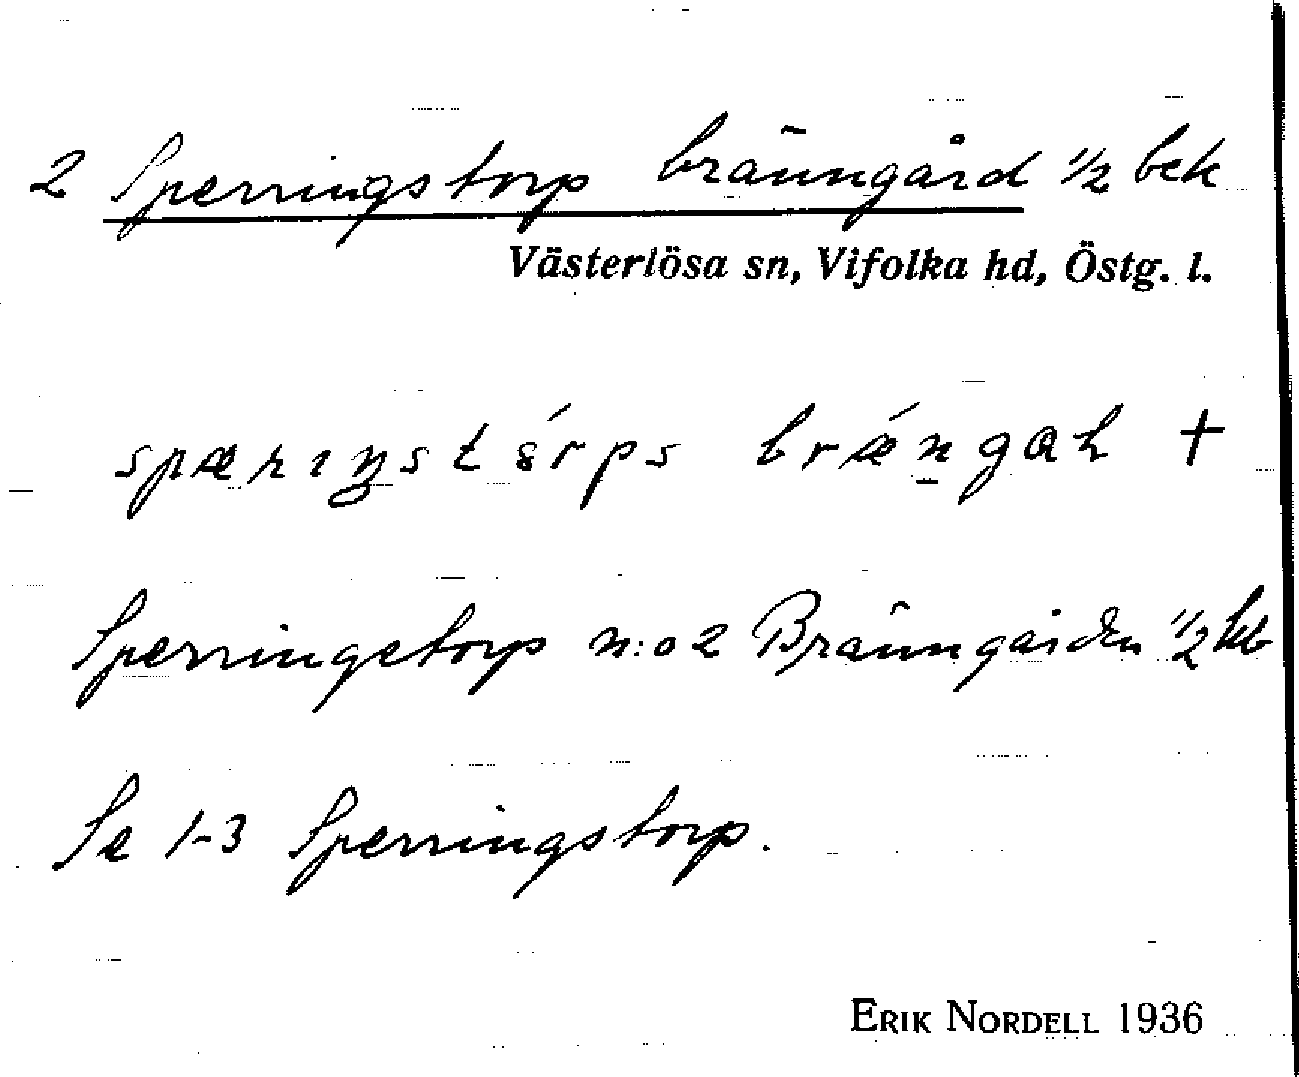 2 Sperringstorp bränngård 1/2 bek
Västerlösa sn, Vifolka hd, Östg. l.
spæriŋstórps brǽngaḷ +
Sperringstorp n:o 2 Bränngården 1/2
Se 1-3 Sperringstorp.
ERIK NORDELL 1936